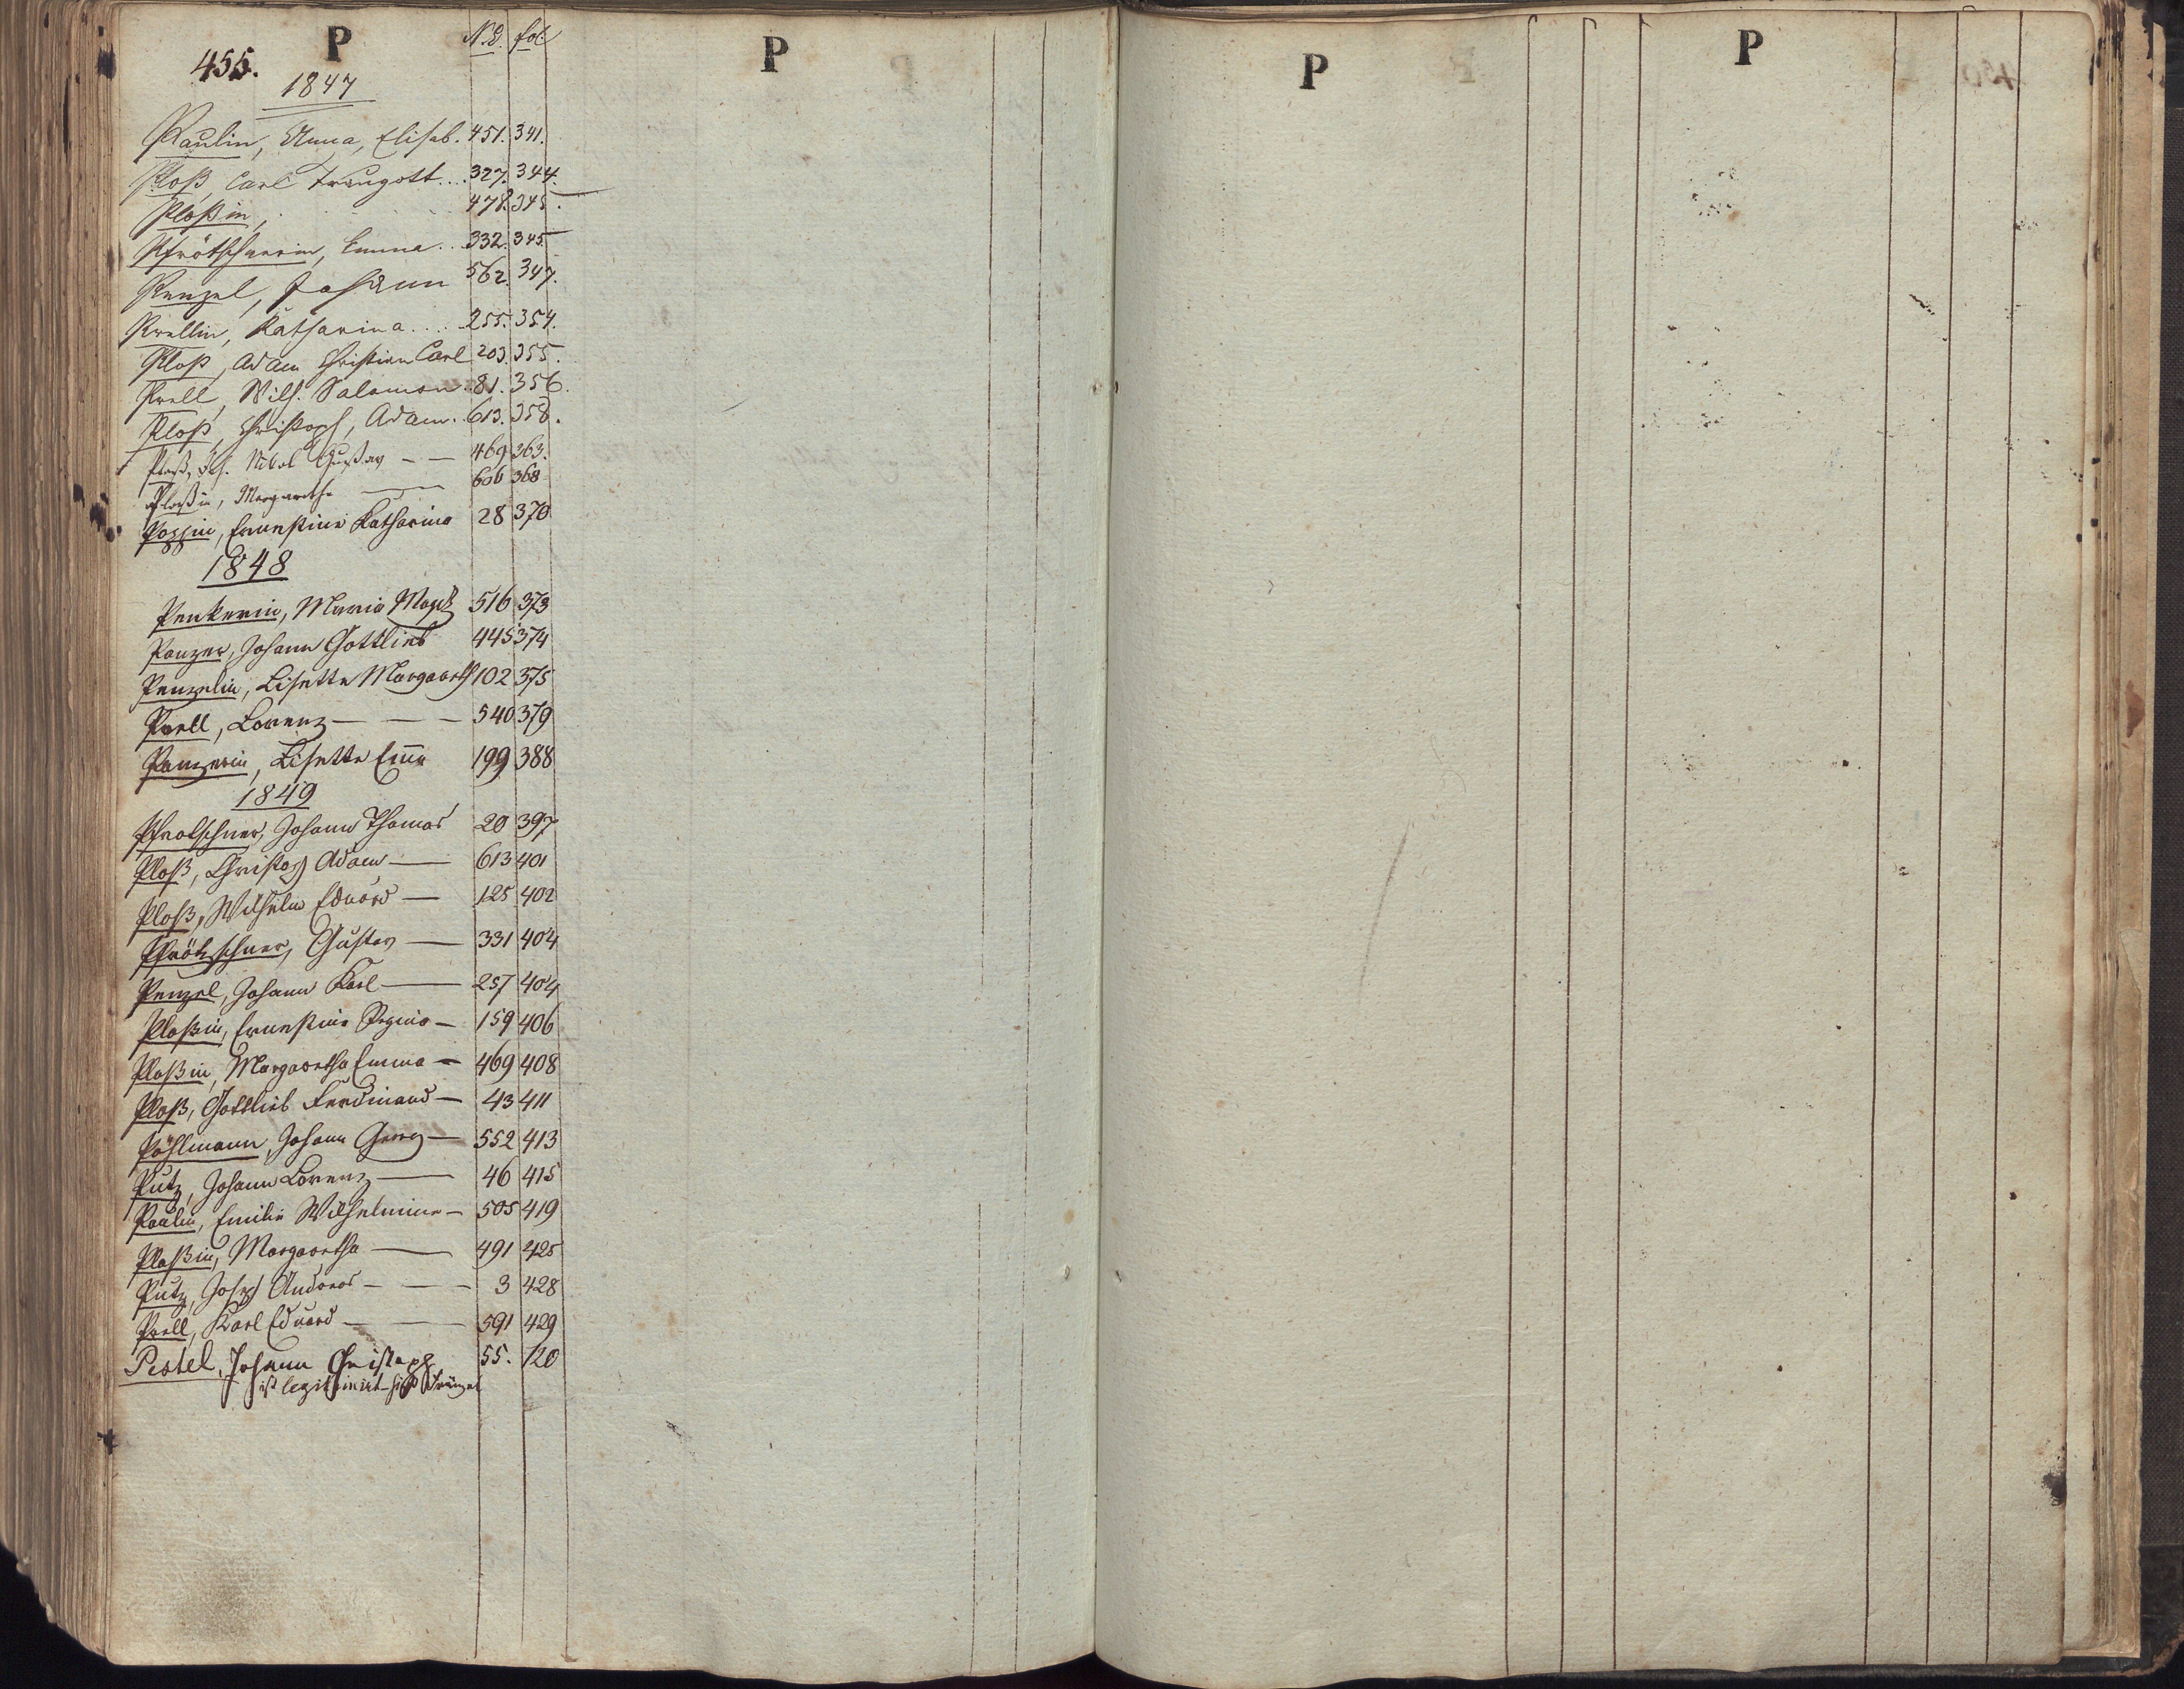 P N.E. fol.
455.
1847
Paulin, Anna, Elisab. 451. 341.
Ploß, Carl Traugott... 327. 344.
Ploßin, 478. 345.
Pfrötschnerin, Emma.. 332. 345.
Penzel, Johann 562. 347.
Prellin, Katharina.... 255. 354.
Ploß, Adam Christian Carl 203. 355.
Prell, Wilh. Salomon.. 81. 356.
Ploß, Christoph, Adam. 613. 358.
Ploß, Joh. Nikol Gustav - - 469 363.
Ploßin, Margaretha — 606 368
Poppin, Ernestine Katharina 28 370
1848
Penkerin, Maria Magd. 516 373
Panzer, Johann Gottlieb 445 374
Penzelin, Lisette Margareth 102 375
Prell, Lorenz — — — 540 379
Panzerin, Lisette Em̅a 199 388
1849
Pfrotschner, Johann Thomas 20 397
Ploß, Christoph Adam — 613 401
Ploß, Wilhelm Eduard — 125 402
Pfrötzschner, Gustav — 331 404
Penzel, Johann Karl — 257 404
Ploßin, Ernestine Regina — 159 406
Ploßin, Margaretha Emma — 469 408
Ploß, Gottlieb Ferdinand — 43 411
Pöhlmann, Johann Georg — 552 413
Putz, Johann Lorenz — 46 415
Paulin, Emilie Wilhelmine — 505 419
Ploßin, Margaretha — 491 425
Putz, Joseph Andreas — — 3 428
Prell, Karl Eduard — — 591 429
Pestel, Johann Christoph 55. 120
ist legitimirt
P
P
P